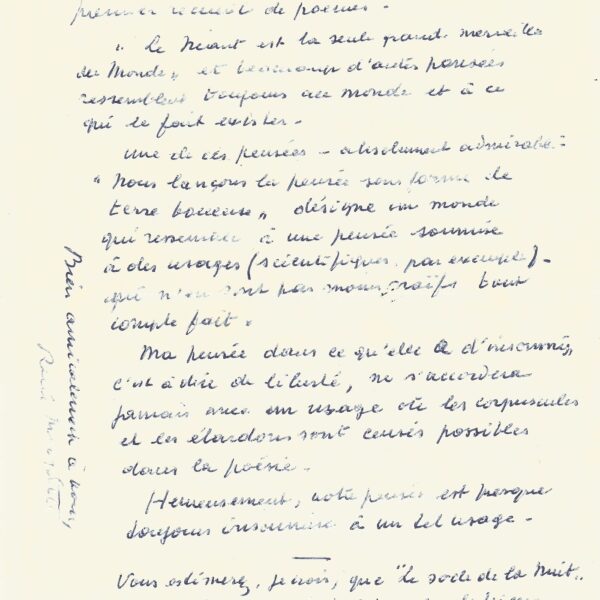 premier recueil de poèmes.
"Le Néant est la seule grande merveille
du Monde" et beaucoup d'autres pensées
ressemblent toujours au monde et à ce
qui le fait exister.
une de ces pensées - absolument admirable :
"Nous lançons la pensée sous forme de
terre boueuse" désigne un monde
qui ressemble à une pensée soumise
à des usages (scientifiques, par exemple) -
qui n'en sont pas moins tout
compte fait.
Ma pensée dans ce qu'elle a d'insoumis,
c'est à dire de liberté, ne s'accordera
jamais avec un usage où les corpuscules
et les sont censés possibles
dans la poésie.
Heureusement, votre pensée est presque
toujours insoumise à un tel usage.
Vous estimerez, je crois, que "le socle de la Nuit"
Bien amicalement à vous,